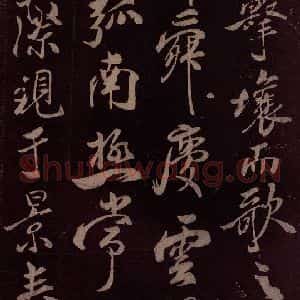 擊壤而歌之
舜慶雲
弧南極常
際現于景
Shufawang.CN